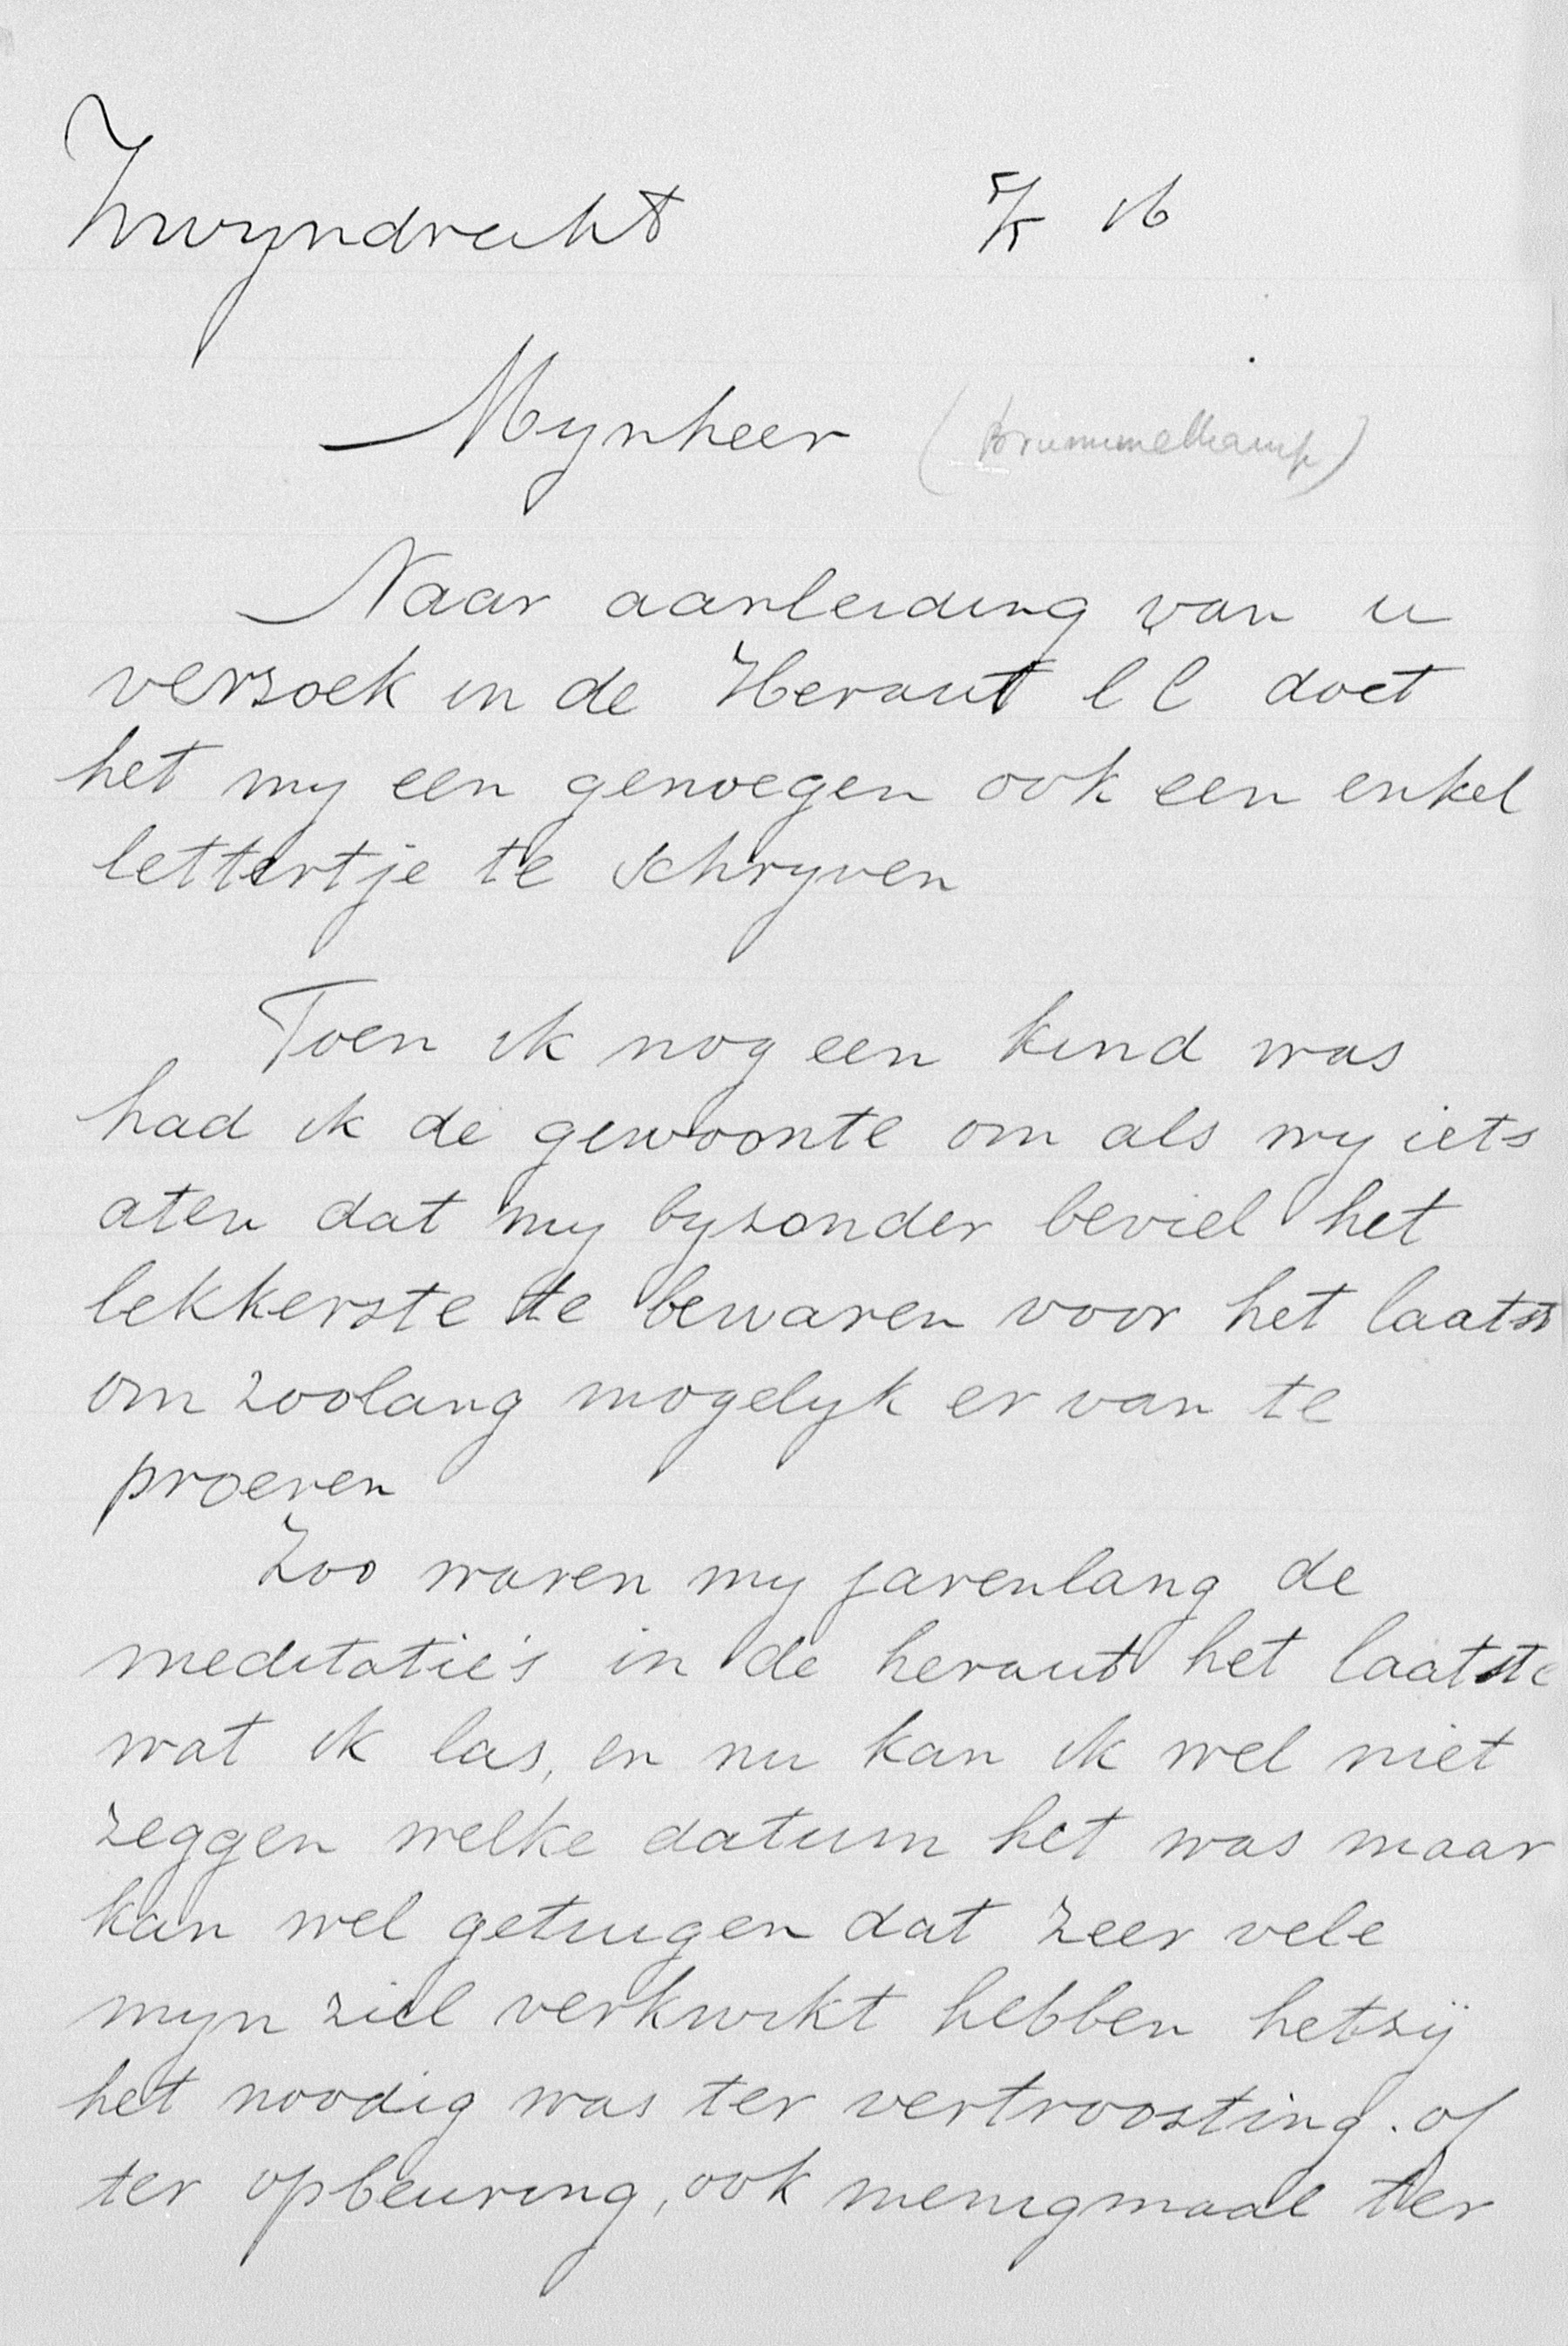 Zwyndrecht 5/5 16
Mynheer (Brummelkamp)
Naar aanleiding van u
verzoek in de Heraut l l doet
het my een genoegen ook een enkel
lettertje te schryven
Toen ik nog een kind was
had ik de gewoonte om als wy iets
aten dat my byzonder beviel het
lekkerste te bewaren voor het laatst
om zoolang mogelyk er van te
proeven
Zoo waren my jarenlang de
meditatie's in de heraut het laatste
wat ik las, en nu kan ik wel niet
zeggen welke datum het was maar
kan wel getuigen dat zeer vele
myn ziel verkwikt hebben hetzij
het noodig was ter vertroosting. of
ter opbeuring, ook menigmaal ter